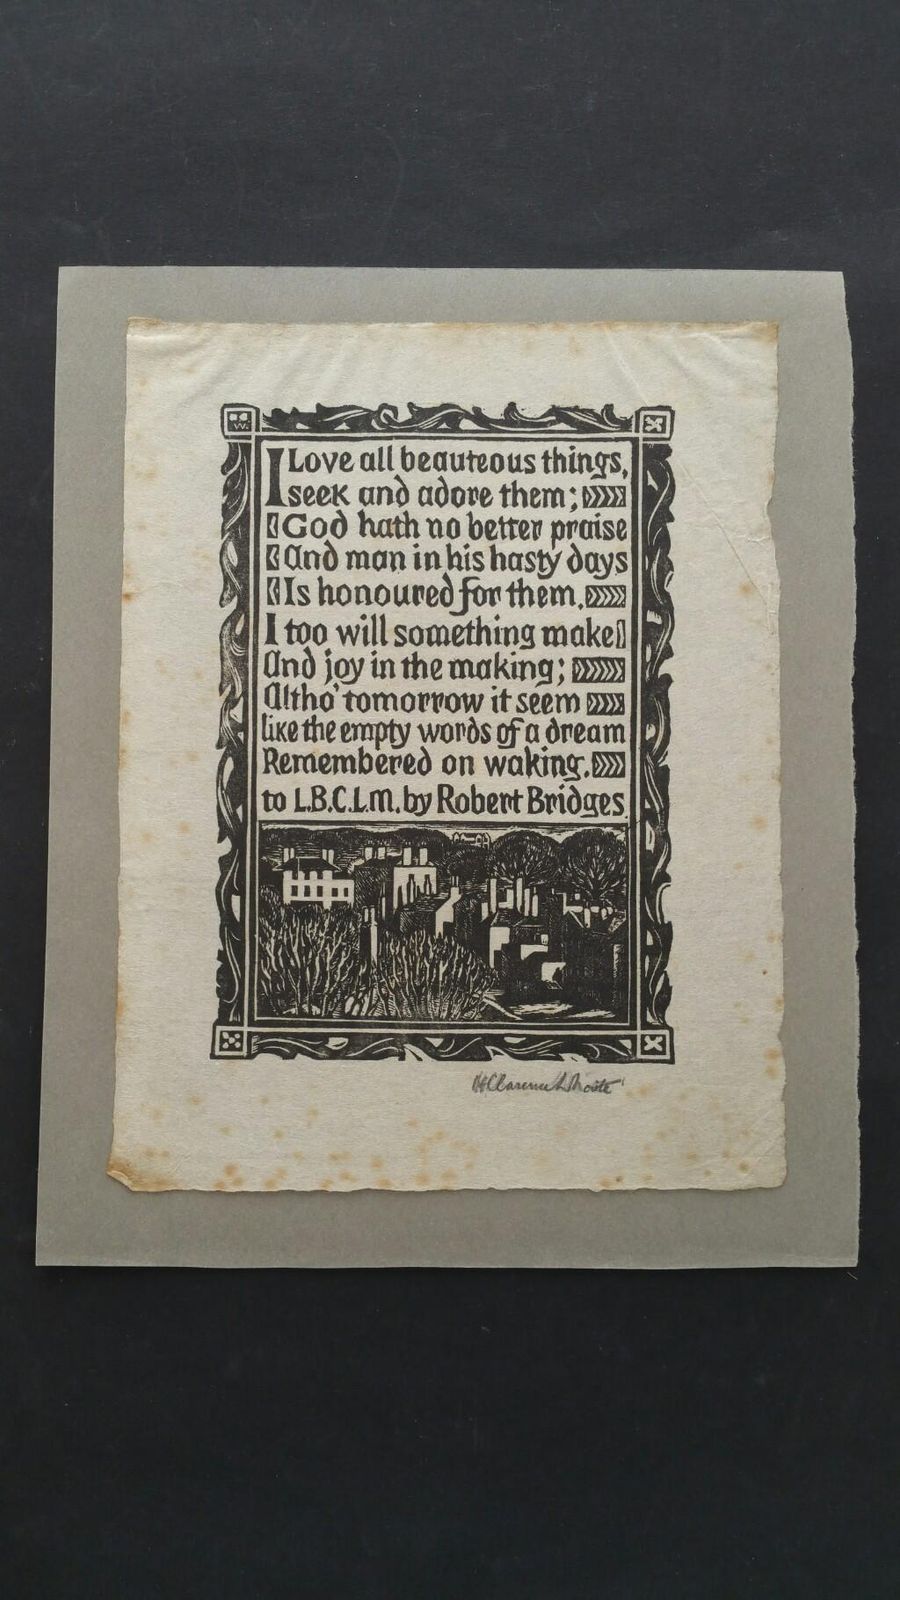 W.
I Love all beauteous things,
I seek and adore them;
God hath no better praise
And man in his hasty days
Is honoured for them.
I too will something make
And joy in the making;
Altho' tomorrow it seem
like the empty words of a dream
Remembered on waking.
to L.B.C.L.M. by Robert Bridges
H Clarence Whaite